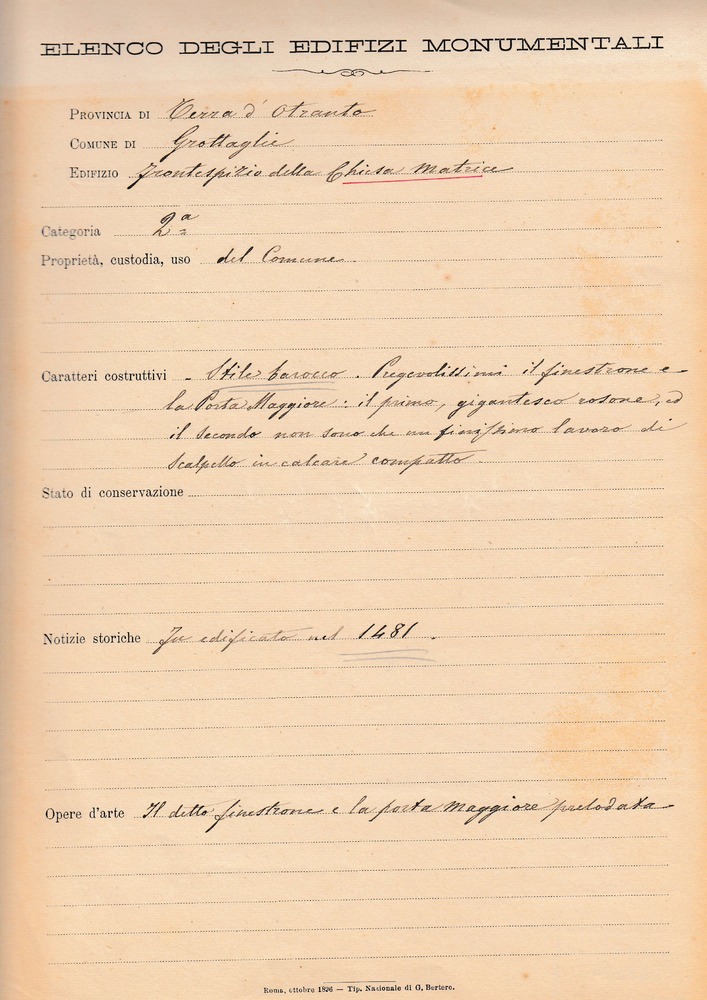 ELENCO DEGLI EDIFIZI MONUMENTALI
PROVINCIA DI Terra d' Otranto
COMUNE DI Grottaglie
EDIFIZIO Frontespizio della Chiesa Matrice
Categoria 2ª
Proprietà, custodia, uso del Comune.
Caratteri costruttivi - Stile barocco. Pregevolissimi il finestrone e
la Porta Maggiore: il primo, gigantesco rosone, ed
il secondo non sono che un finissimo lavoro di
scalpello in calcare compatto.
Stato di conservazione
Notizie storiche Fu edificato nel 1481.
Opere d'arte Il detto finestrone e la porta maggiore prelodata
Roma, ottobre 1896 — Tip. Nazionale di G. Bertero.